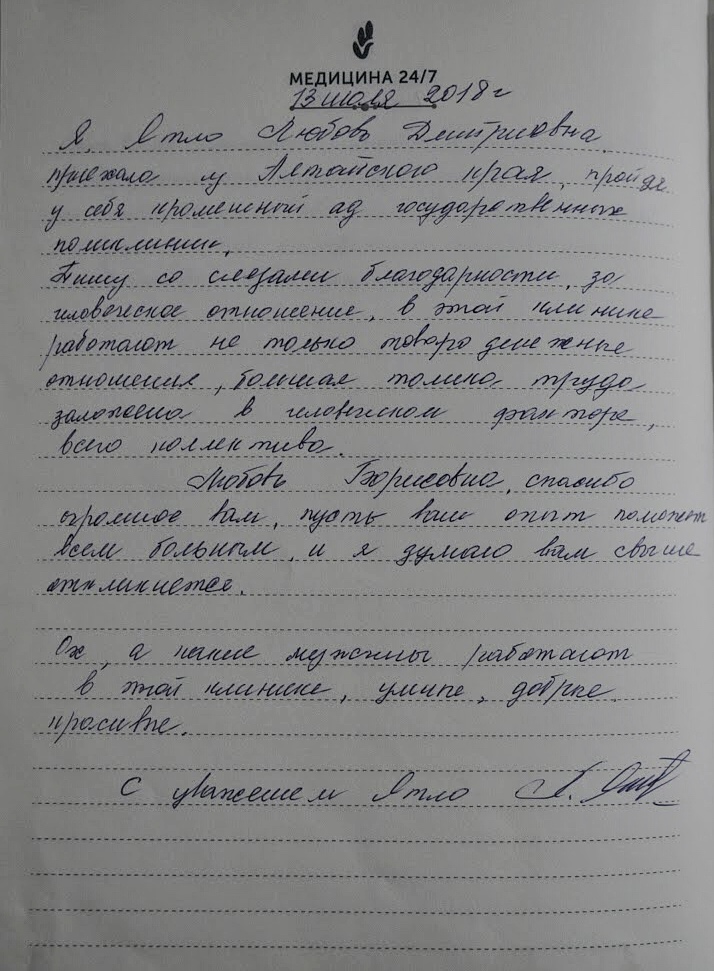 МЕДИЦИНА 24/7
13 июля 2018 г
Я, Ятло Любовь Дмитриовна,
приехала из Алтайского края, пройдя
у себя кромешный ад государственных
поликлиник,
Пишу со слезами благодарности, за
человеческое отношение, в этой клинике
работают не только товаро денежные
отношения, большая толика труда
заложена в человеческом факторе,
всего коллектива.
Любовь Борисовна, спасибо
огромное вам, пусть ваш опыт поможет
всем больным, и я думаю вам свыше
откликнется.
Ох, а какие мужчины работают
в этой клинике, умные, добрые,
красивые.
С уважением Ятло Л.